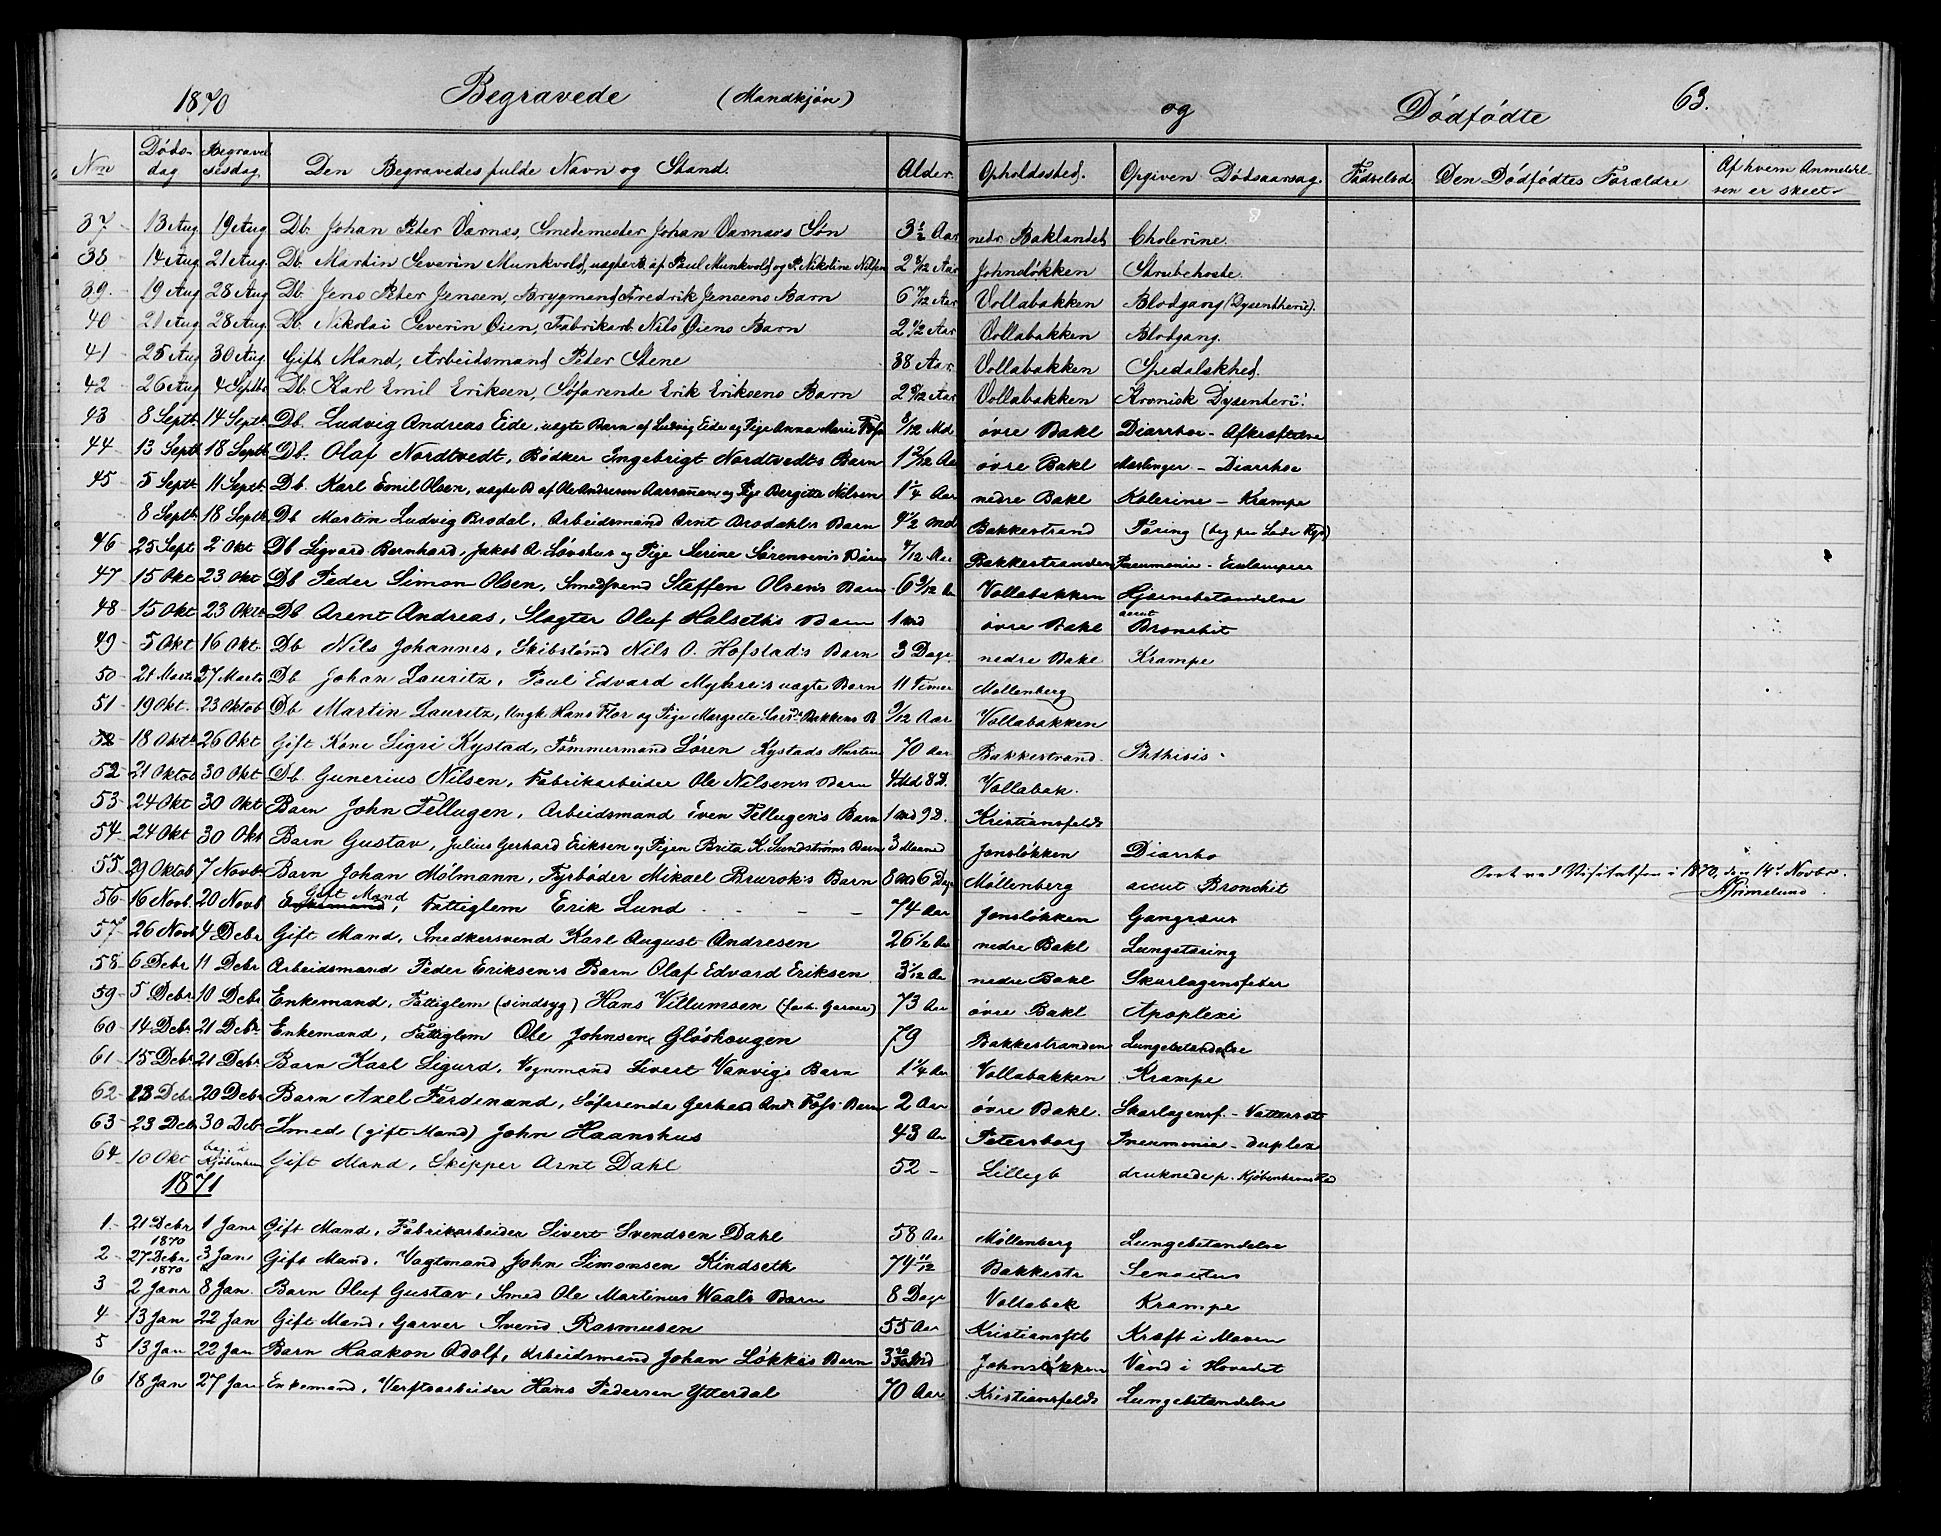 1870 Begravede (Mandkjøn) og Dødfødte 63.
Nro Døds-dag Begravelsesdag. Den Begravedes fulde Navn og Stand. Alder. Opholdssted. Opgiven Dødsaarsag. Fødselsd. Den Dødfødtes Forældre Af hvem Anmeldelsen er skeet
37 13 Aug 19 Aug Db. Johan Peter Varnes, Smedemester Johan Varnæs Søn 3 1/2 Aar nedr Baklandet Cholerine.
38 14 Aug 21 Aug. Db. Martin Severin Munkvold, uægte B af Paul Munkvold og P. Nikoline Nilsen Aar Johnsløkken Strubehoste.
39. 19 Aug 28 Aug Db. Jens Peter Jensen, Brygmand Fredrik Jensens Barn 6 7/12 Aar Vollabakken Blodgang (Dysentheri).
40 21 Aug 28 Aug. Db. Nikolai Severin Øien, Fabrikarb Nils Øiens Barn 2 1/2 Aar Vollabakken Blodgang.
41 25 Aug 30 Aug. Gift Mand, Arbeidsmand Peter Stene 38 Aar Vollabakken Spedalskhed.
42 26 Aug 4 Septbr Db. Karl Emil Eriksen, Søfarende Erik Eriksens Barn Aar Vollabakken Kronisk Dysenteri.
43 8 Septb. 14 Septb. Db. Ludvig Andreas Eide, uægte Barn af Ludvig Eide og Pige Anna Marie Foss øvre Bakl Diarrhoe - Afkræftelse
44 13 Septb 18 Septb. Db. Olaf Nordtvedt, Bødker Ingebrigt Nordtvedts Barn Aa øvre Bakl Meslinger - Diarrhoe
45 5 Septb. 11 Septb. Db. Karl Emil Olsen, uægte B af Ole Andersen og Pige Bergitte Nilsen 1 1/4 Aar nedre Bakl Kolerine - Krampe
8 Septb. 18 Septb. Db Martin Ludvig Brodal, Arbeidsmand Arnt Brodahl's Barn Md Bakkestrand Tæring
46 25 Sept 2 Okt Db Sigvard Bernhard, Jakob A. Løvshus og Pige Serine Sørensen's Barn 4/12 Aar Bakkestranden Pneumonie - Eclampsie
47 15 Okt 23 Okt Db Peder Simon Olsen, Smedsvend Steffen Olsen's Barn 6 9/12 Aa Vollabakken Hjernebetændelse
48 15 Okt 23 Oktb Db Arent Andreas, Slagter Oluf Halseth's Barn 1 Md øvre Bakl acut Bronchit
49 5 Okt 16 Okt. Db Nils Johannes, Skibstømd Nils O. Hofstad's Barn 3 Dage nedre Bakl Krampe
50 21 Marts 27 Marts Db Johan Lauritz, Paul Edvard Myhre's uægte Barn 11 Timer Møllenberg
51 19 Okt. 23 Oktob Db Martin Lauritz, Ungk Hans Flor og Pige Margrete Larsd. Bakkens B. 9/12 Aar Vollabakken
52 18 Oktb 26 Okt Gift Kone Sigri Kystad, Tømmermand Søren Kystads Hustru 70 Aar Bakkestrand Phthisis
52 21 Oktob 30 Okt Db Gunerius Nilsen, Fabrikarbeider Ole Nilsen's Barn 4 Md 8 D. Vollabak.
53 24 Okt 30 Okt Barn John Tellugen, Arbeidsmand Even Tellugen's Barn 1 Md 9 D. Kristiansfelds
54 24 Okt 30 Okt Barn Gustav, Julius Gerhard Eriksen og Pigen Berita K. Sundstrøms Barn 3 Maaned Jonsløkken Diarrho
55 29 Oktob 7 Novb Barn Johan Mølmann, Fyrbøder Mikael Brurok's Barn 8 Md 6 Dage Møllenberg acut Bronchit
Seet ved Visitatsen i 1870, den 14. Novbr. Grimelund.
56 16 Novb. 20 Novb Gift Mand, Fattiglem Erik Lund 74 Aar Jonsløkken Gangræna
57 26 Novb 4 Debr Gift Mand, Snedkersvend Karl August Andresen 26 1/2 Aar nedre Bakl Lungetæring
58 6 Debr 11 Debr Arbeidsmand Peder Eriksen's Barn Olaf Edvard Eriksen Aa nedre Bakl Skarlagensfeber
59 5 Debr 10 Debr Enkemand, Fattiglem (sindsyg) Hans Villumsen (forh. Garver) 73 Aar øvre Bakl Apoplexi
60 14 Debr 21 Debr Enkemand, Fattiglem Ole Johnsen Gløshougen 79 Bakkestranden Lungebetændelse
61 15 Debr 21 Debr. Barn Karl Sigurd, Vognmand Sivert Vanvig's Barn 1 1/4 Aar Vollabakken Krampe
62 13 Debr 20 Debr Barn Axel Ferdinand, Søfarende Gerhard Andr Foss Barn 2 Aar øvre Bakl. Skarlagensf. - Vattersot
63 23 Debr 30 Debr Smed (gift Mand) John Haanshus 43 Aa Petersborg Pneumonia - duplex
64 10 Okt beg. i Kjøbenhavn Gift Mand, Skipper Arnt Dahl 52 Lillegb druknede p. Kjøbenhavns Red
1871
1. 21 Debr 1870 1 Janr Gift Mand, Fabrikarbeider Sivert Svendsen Dahl 58 Aar Møllenberg Lungebetændelse
2 27 Debr 1870 3 Jan Gift Mand, Vagtmand John Simonsen Kindseth 74 11/12 Bakkestr Senectus
3 2 Janr 8 Jan. Barn Oluf Gustav, Smed Ole Martinus Waal's Barn 8 Dage Vollabak Krampe
4 13 Jan 22 Jan Gift Mand, Garver Svend Rasmusen 55 Aar Kristiansfelb Kræft i Maven
5 13 Jan 22 Jan Barn Haakon Adolf, Arbeidsmand Johan Løkkes Barn Johnsløkken Vand i Hovedet
6 18 Jan 27 Jan Enkemand, Verftsarbeider Hans Pedersen Ytterdal 70 Aar Kristiansfelds Lungebetændelse